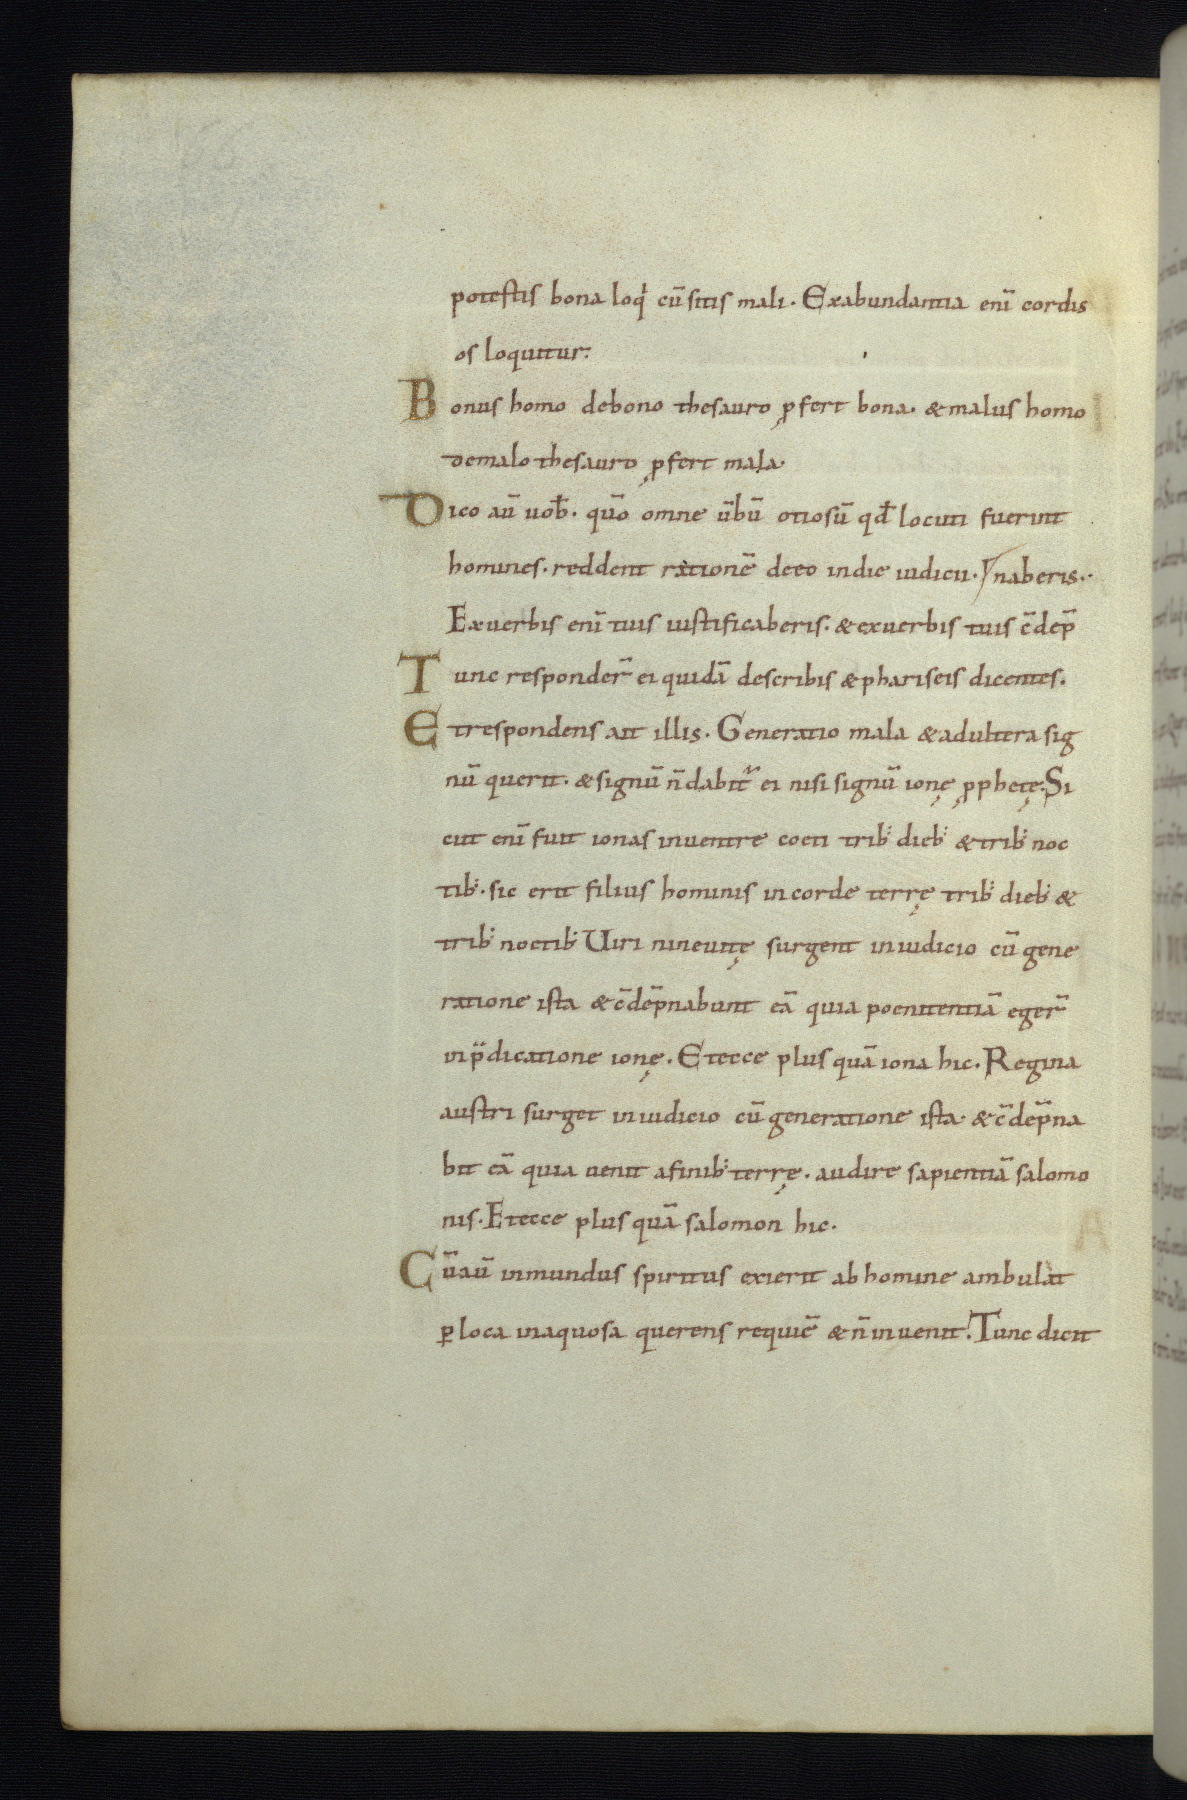 potestis bona loqͥ cū sitis mali. Exabundantia enī cordis
os loquitur.
Bonus homo debono thesauro ꝓfert bona. &malus homo
demalo thesauro ꝓfert mala.
Dico aū uob̄. quō omne ūbū otiosū qd̄ locuti fuerint
homines. reddent rationē deeo indie iudicii. naberis.
Exuerbis enī tuis iustificaberis. &exuerbis tuis c̄dēp
Tunc responder̄ ei quidā describis &phariseis dicentes.
Etrespondens ait illis. Generatio mala &adultera sig
nū querit. &signū n̄dabit᷑ ei nisi signū ionę ꝓphetę. Si
cut enī fuit ionas inuentre coeti trib; dieb; &trib; noc
tib;. sic erit filius hominis incorde terrę trib; dieb; &
trib; noctib; Uiri nineuitę surgent iniudicio cū gene
ratione ista &c̄dēpnabunt eā quia poenitentiā eger̄
inp̄dicatione ionę. Etecce plus quā iona hic. Regina
austri surget iniudicio cū generatione ista &c̄dēpna
bit eā quia uenit afinib; terrę. audire sapientiā salomo
nis. Etecce plus quā salomon hic.
Cūaū inmundus spiritus exierit abhomine ambulat
ꝑloca inaquosa querens requiē &n̄inuenit. Tunc dicit